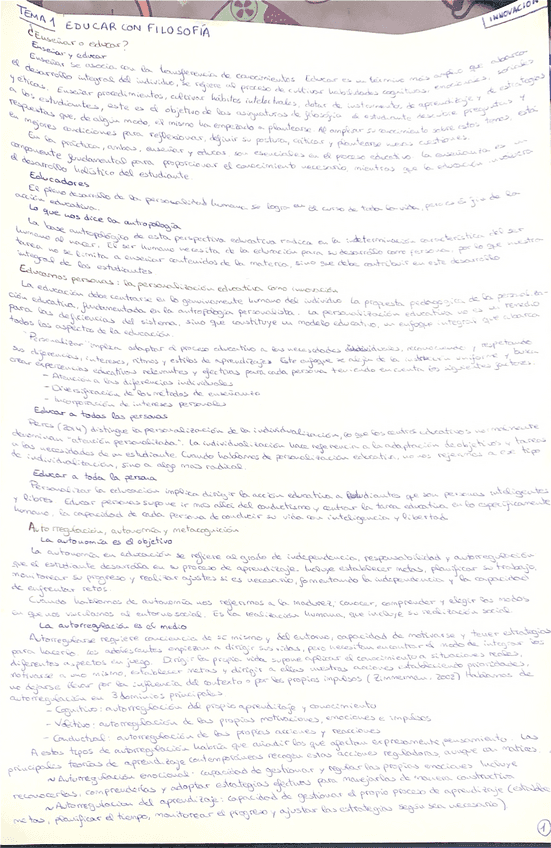 INNOVACIÓN
TEMA 1 EDUCAR CON FILOSOFÍA
¿Enseñar o educar?
Enseñar y educar
Enseñar se asocia con la transferencia de conocimientos. Educar es un término más amplio que abarca
el desarrollo integral del individuo, se refiere al proceso de cultivar habilidades cognitivas, emocionales, sociales
y éticas. Enseñar procedimientos, adecuar hábitos intelectuales, dotar de instrumentos de aprendizaje y de estrategias
a los estudiantes, este es el objetivo de las asignaturas de filosofía. El estudiante descubre preguntas y
respuestas que, de algún modo, él mismo ha empezado a plantearse. Al ampliar su conocimiento sobre estos temas, está
en mejores condiciones para reflexionar, definir su postura, criticar y plantearse nuevas cuestiones.
En la práctica, ambas, enseñar y educar son esenciales en el proceso educativo. La enseñanza es un
componente fundamental para proporcionar el conocimiento necesario, mientras que la educación
el desarrollo holístico del estudiante
Educadores
El pleno desarrollo de la personalidad humana, se logra en el curso de toda la vida, pero es el eje de la
acción educativa.
Lo que nos dice la antropología
La base antropológica de esta perspectiva educativa radica en la indeterminación característica del ser
humano al nacer. El ser humano necesita de la educación para su desarrollo como persona, por lo que nuestra
tarea no se limita a enseñar contenidos de la materia, sino que debe contribuir en este desarrollo
integral de los estudiantes
Educamos personas: la personalización educativa como innovación
La educación debe centrarse en lo genuinamente humano del individuo. La propuesta pedagógica de la personaliza-
ción educativa, fundamentada en la antropología personalista. La personalización educativa no es un remedio
para las deficiencias del sistema, sino que constituye un modelo educativo, un enfoque integrador que abarca
todos los aspectos de la educación.
Personalizar implica adaptar el proceso educativo a las necesidades individuales, reconociendo y respetando
sus diferencias, intereses, ritmos y estilos de aprendizaje. Este enfoque se aleja de la uniforme y busca
crear experiencias educativas relevantes y efectivas para cada persona teniendo en cuenta los siguientes factores:
- Atención a las diferencias individuales
- Diversificación de los métodos de enseñanza
- Incorporación de intereses personales
Educar a todas las personas
Pérez (2014) distingue la personalización de la individualización, lo que los centros educativos normalmente
denominan "atención personalizada". La individualización hace referencia a la adaptación de objetivos y tareas
a las necesidades de un estudiante. Cuando hablamos de personalización educativa, no nos referimos a ese tipo
de individualización, sino a algo más radical.
Educar a toda la persona
Personalizar la educación implica dirigir la acción educativa a estudiantes que son personas inteligentes
y libres. Educar personas supone ir más allá del conductismo y centrar la tarea educativa en lo específicamente
humano, la capacidad de cada persona de conducir su vida con inteligencia y libertad.
Autorregulación, autonomía y metacognición
La autonomía es el objetivo
La autonomía en educación se refiere al grado de independencia, responsabilidad y autorregulación
que el estudiante desarrolla en su proceso de aprendizaje. Incluye establecer metas, planificar su trabajo,
monitorear su progreso y realizar ajustes si es necesario, fomentando la independencia y la capacidad
de enfrentar retos.
Cuando hablamos de autonomía nos referimos a la madurez, conocer, comprender y elegir los modos
en que nos vinculamos al entorno social. Es la realización humana, que incluye su realización social
La autorregulación es el medio
Autorregularse requiere conciencia de sí mismo y del entorno, capacidad de motivarse y tener estrategias
para hacerlo. Los adolescentes empiezan a dirigir sus vidas, pero necesitan encontrar el modo de integrar los
diferentes aspectos en juego. Dirigir la propia vida supone aplicar el conocimiento a situaciones reales,
motivarse a uno mismo, establecer metas y dirigir a ellas nuestras acciones, estableciendo prioridades,
no dejarse llevar por la influencia del contexto o por los propios impulsos (Zimmerman, 2005). Hablamos de
autorregulación en 3 dominios principales
- Cognitivo: autorregulación del propio aprendizaje y conocimiento
- Volitivo: autorregulación de las propias motivaciones, emociones e impulsos
- Conductual: autorregulación de las propias acciones y reacciones
A estos tipos de autorregulación habría que añadir los que afectan expresamente pensamiento. Las
principales teorías de aprendizaje contemporáneas recogen estas acciones reguladoras aunque con matices.
~ Autorregulación emocional: capacidad de gestionar y regular las propias emociones. Incluye
reconocerlas, comprenderlas y adoptar estrategias efectivas para manejarlas de manera constructiva
~ Autorregulación del aprendizaje: capacidad de gestionar el propio proceso de aprendizaje (establecer
metas, planificar el tiempo, monitorear el progreso y ajustar las estrategias según sea necesario)
1